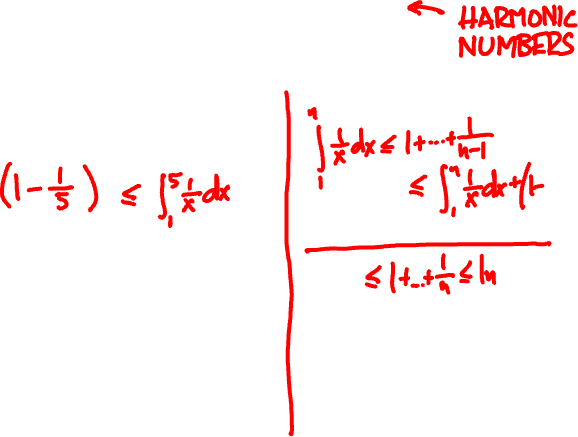 ← HARMONIC
NUMBERS
(1 - 1/5) ≤ ∫₁⁵ 1/x dx
∫₁ⁿ 1/x dx ≤ 1+...+ 1/(n-1)
≤ ∫₁ⁿ 1/x dx + (1-
≤ 1+...+ 1/n ≤ ln